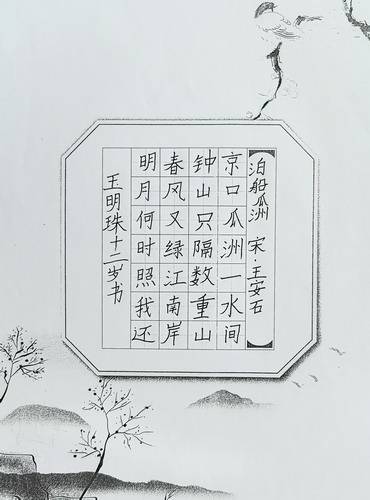 泊船瓜洲 宋·王安石
京口瓜洲一水间
钟山只隔数重山
春风又绿江南岸
明月何时照我还
王明珠十二岁书